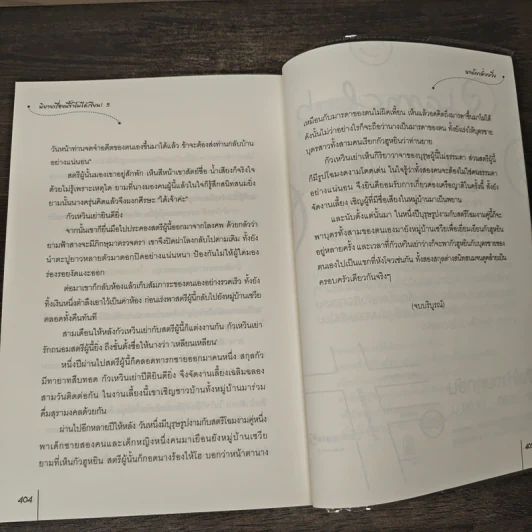 วันหน้าท่านจดจำอดีตของตนเองขึ้นมาได้แล้ว ข้าจะต้องส่งท่านกลับบ้าน
อย่างแน่นอน"
สตรีผู้นั้นมองเขาอยู่สักพัก เห็นสีหน้าเขาสัตย์ซื่อ น้ำเสียงก็จริงใจ
ด้วยไม่รู้เพราะเหตุใด ยามที่นางมองคนผู้นี้แล้วในใจก็รู้สึกสนิทสนมยิ่ง
ยามนั้นนางครุ่นคิดแล้วจึงผงกศีรษะ "ได้เจ้าค่ะ"
กัวเหวินเย่ายินดียิ่ง
จากนั้นเขาก็ยื่นมือไปประคองสตรีผู้นี้ออกมาจากโลงศพ ด้วยกลัวว่า
ยามฟ้าสางจะมีภิกษุมาตรวจตรา เขาจึงปิดฝาโลงกลับไปตามเดิม ทั้งยัง
นำตะปูยาวหลายตัวมาตอกปิดอย่างแน่นหนา ป้องกันไม่ให้ผู้ใดมอง
ร่องรอยงัดแงะออก
ต่อมาเขาก็กลับห้องแล้วเก็บสัมภาระของตนเองอย่างรวดเร็ว ทั้งยัง
ทิ้งเงินหนึ่งตำลึงเอาไว้เป็นค่าห้อง ก่อนเร่งพาสตรีผู้นี้กลับไปยังหมู่บ้านเชวีย
ตลอดทั้งคืนทันที
สามเดือนให้หลังกัวเหวินเย่ากับสตรีผู้นี้ก็แต่งงานกัน กัวเหวินเย่า
รักถนอมสตรีผู้นี้ยิ่ง ถึงขั้นตั้งชื่อให้นางว่า "เหลียนเหลียน"
หนึ่งปีผ่านไปสตรีผู้นี้ก็คลอดทารกชายออกมาคนหนึ่ง สกุลกัว
มีทายาทสืบทอด กัวเหวินเย่าปีติยินดียิ่ง จึงจัดงานเลี้ยงเฉลิมฉลอง
สามวันติดต่อกัน ในงานเลี้ยงนี้เขาเชิญชาวบ้านทั้งหมู่บ้านมาร่วม
ดื่มสุรามงคลด้วยกัน
ผ่านไปอีกหลายปีให้หลัง วันหนึ่งมีบุรุษรูปงามกับสตรีโฉมงามคู่หนึ่ง
พาเด็กชายสองคนและเด็กหญิงหนึ่งคนมาเยือนยังหมู่บ้านเชวีย
ยามที่เห็นกัวฮูหยิน สตรีผู้นั้นก็กอดนางร้องไห้โฮ บอกว่าหน้าตานาง
404
เหมือนกับมารดาของตนไม่ผิดเพี้ยน เห็นแล้วอดคิดถึงมารดาขึ้นมาไม่ได้
ดังนั้นไม่ว่าอย่างไรก็จะถือว่านางเป็นมารดาของตน ทั้งยังเร่งให้บุตรชาย
บุตรสาวทั้งสามคนเรียกกัวฮูหยินว่าท่านยาย
กัวเหวินเย่าเห็นกิริยาวาจาของบุรุษผู้นี้ไม่ธรรมดา ส่วนสตรีผู้นี้
ก็มีรูปโฉมงดงามโดดเด่น ในใจรู้ว่าทั้งสองคนจะต้องไม่ใช่คนธรรมดา
อย่างแน่นอน จึงยินดียอมรับการเกี่ยวดองเครือญาติในครั้งนี้ ทั้งยัง
จัดงานเลี้ยง เชิญผู้ที่มีชื่อเสียงในหมู่บ้านมาเป็นพยาน
และนับตั้งแต่นั้นมา ในหนึ่งปีบุรุษรูปงามกับสตรีโฉมงามคู่นี้ก็จะ
พาบุตรทั้งสามของตนเองมายังหมู่บ้านเชวียเพื่อเยี่ยมเยียนกัวฮูหยิน
อยู่หลายครั้ง และเวลาที่กัวเหวินเย่าว่างก็จะพากัวฮูหยินกับบุตรชายของ
ตนเองไปเป็นแขกที่หังโจวเช่นกัน ทั้งสองสกุลต่างสนิทสนมจนดูคล้ายเป็น
ครอบครัวเดียวกันจริงๆ
(จบบริบูรณ์)